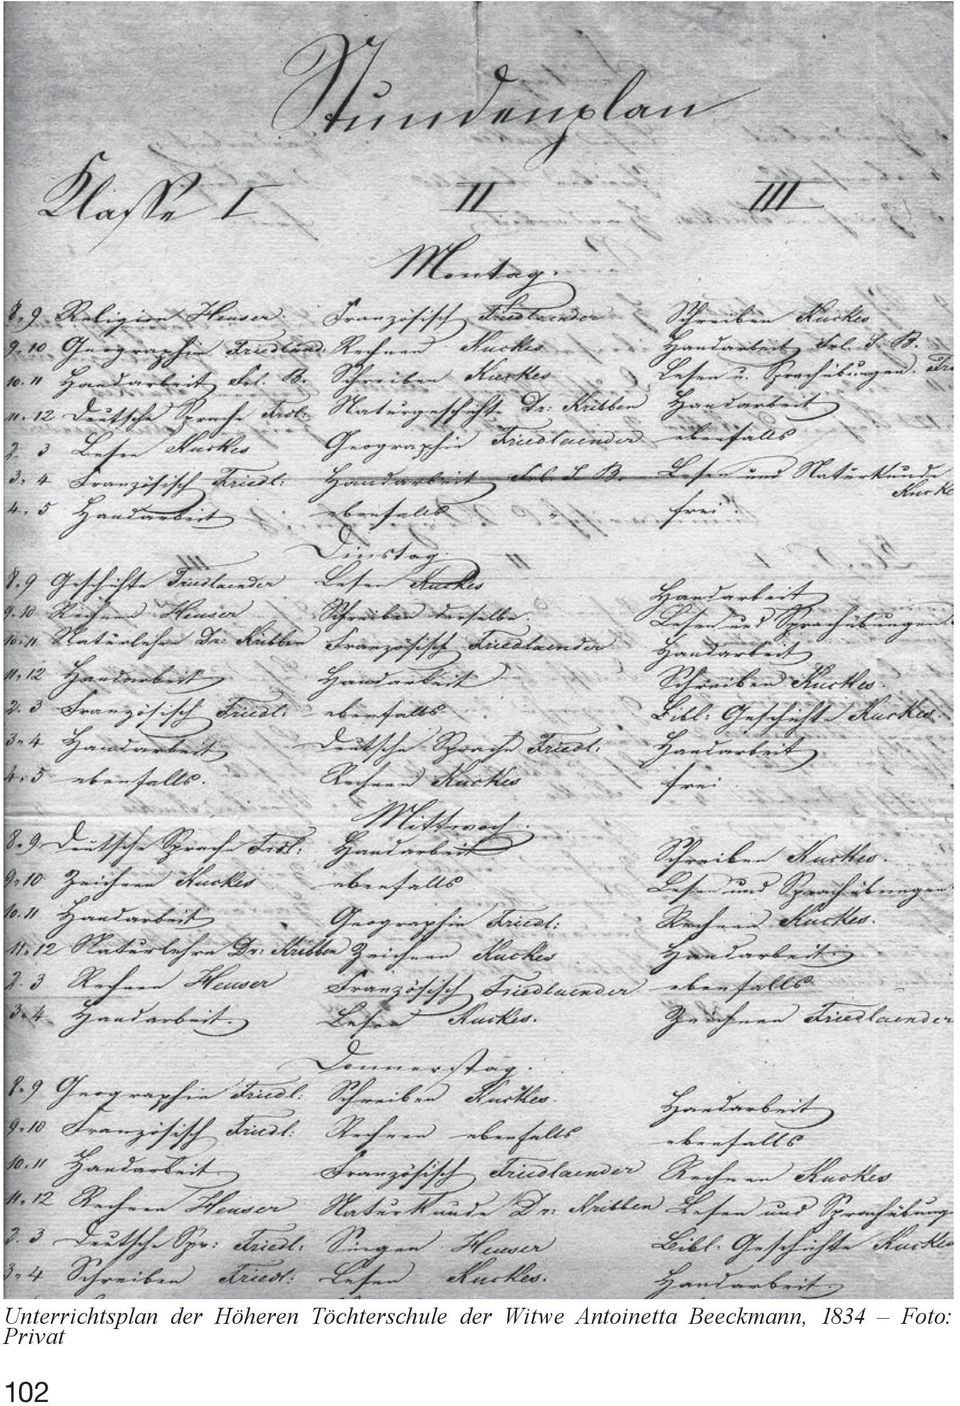 Stundenplan
Klasse I II III
Montag.
8-9 Religion Heuser. Französisch Friedlaender Schreiben Kuckes
9-10 Geographie Friedländ. Rechnen Kuckes Handarbeit Frl. J. B.
10-11 Handarbeit Frl. B. Schreiben Kuckes Lesen u. Sprachübungen.
11-12 Deutsche Sprache Frdl: Naturgeschichte Dr: Kribben Handarbeit
2-3 Lesen Kuckes Geographie Friedlaender ebenfalls
3-4 Französisch Friedl: Handarbeit Frl. J. B. Lesen und Naturkunde
Kucke
4-5 Handarbeit ebenfalls frei
Dinstag.
8-9 Geschichte Friedlaender Lesen Kuckes Handarbeit
9-10 Rechnen Heuser Schreiben derselbe. Lesen und Sprachübungen
10-11 Naturlehre Dr: Kribben Französisch Friedlaender Handarbeit
11-12 Handarbeit Handarbeit Schreiben Kuckes.
2-3 Französisch Friedl: ebenfalls Bibl: Geschichte Kuckes.
3-4 Handarbeit Deutsche Sprache Friedl: Handarbeit
4-5 ebenfalls. Rechnen Kuckes frei
Mittwoch.
8-9 Deutsche Sprache Frdl: Handarbeit Schreiben Kuckes.
9-10 Zeichnen Kuckes ebenfalls Lesen und Sprachübungen
10-11 Handarbeit Geographie Friedl: Rechnen Kuckes.
11-12 Naturlehre Dr: Kribben Zeichnen Kuckes Handarbeit.
2-3 Rechnen Heuser Französisch Friedlaender ebenfalls
3-4 Handarbeit. Lesen Kuckes. Zeichnen Friedlaender
Donnerstag.
8-9 Geographie Friedl: Schreiben Kuckes. Handarbeit
9-10 Französisch Friedl: Rechnen ebenfalls ebenfalls
10-11 Handarbeit. Französisch Friedlaender Rechnen Kuckes
11-12 Rechnen Heuser Naturkunde Dr: Kribben Lesen und Sprachübung
2-3 Deutsche Spr: Friedl: Singen Heuser Bibl. Geschichte Kuckes
3-4 Schreiben Friedl: Lesen Kuckes. Handarbeit.
Unterrichtsplan der Höheren Töchterschule der Witwe Antoinetta Beeckmann, 1834 – Foto:
Privat
102